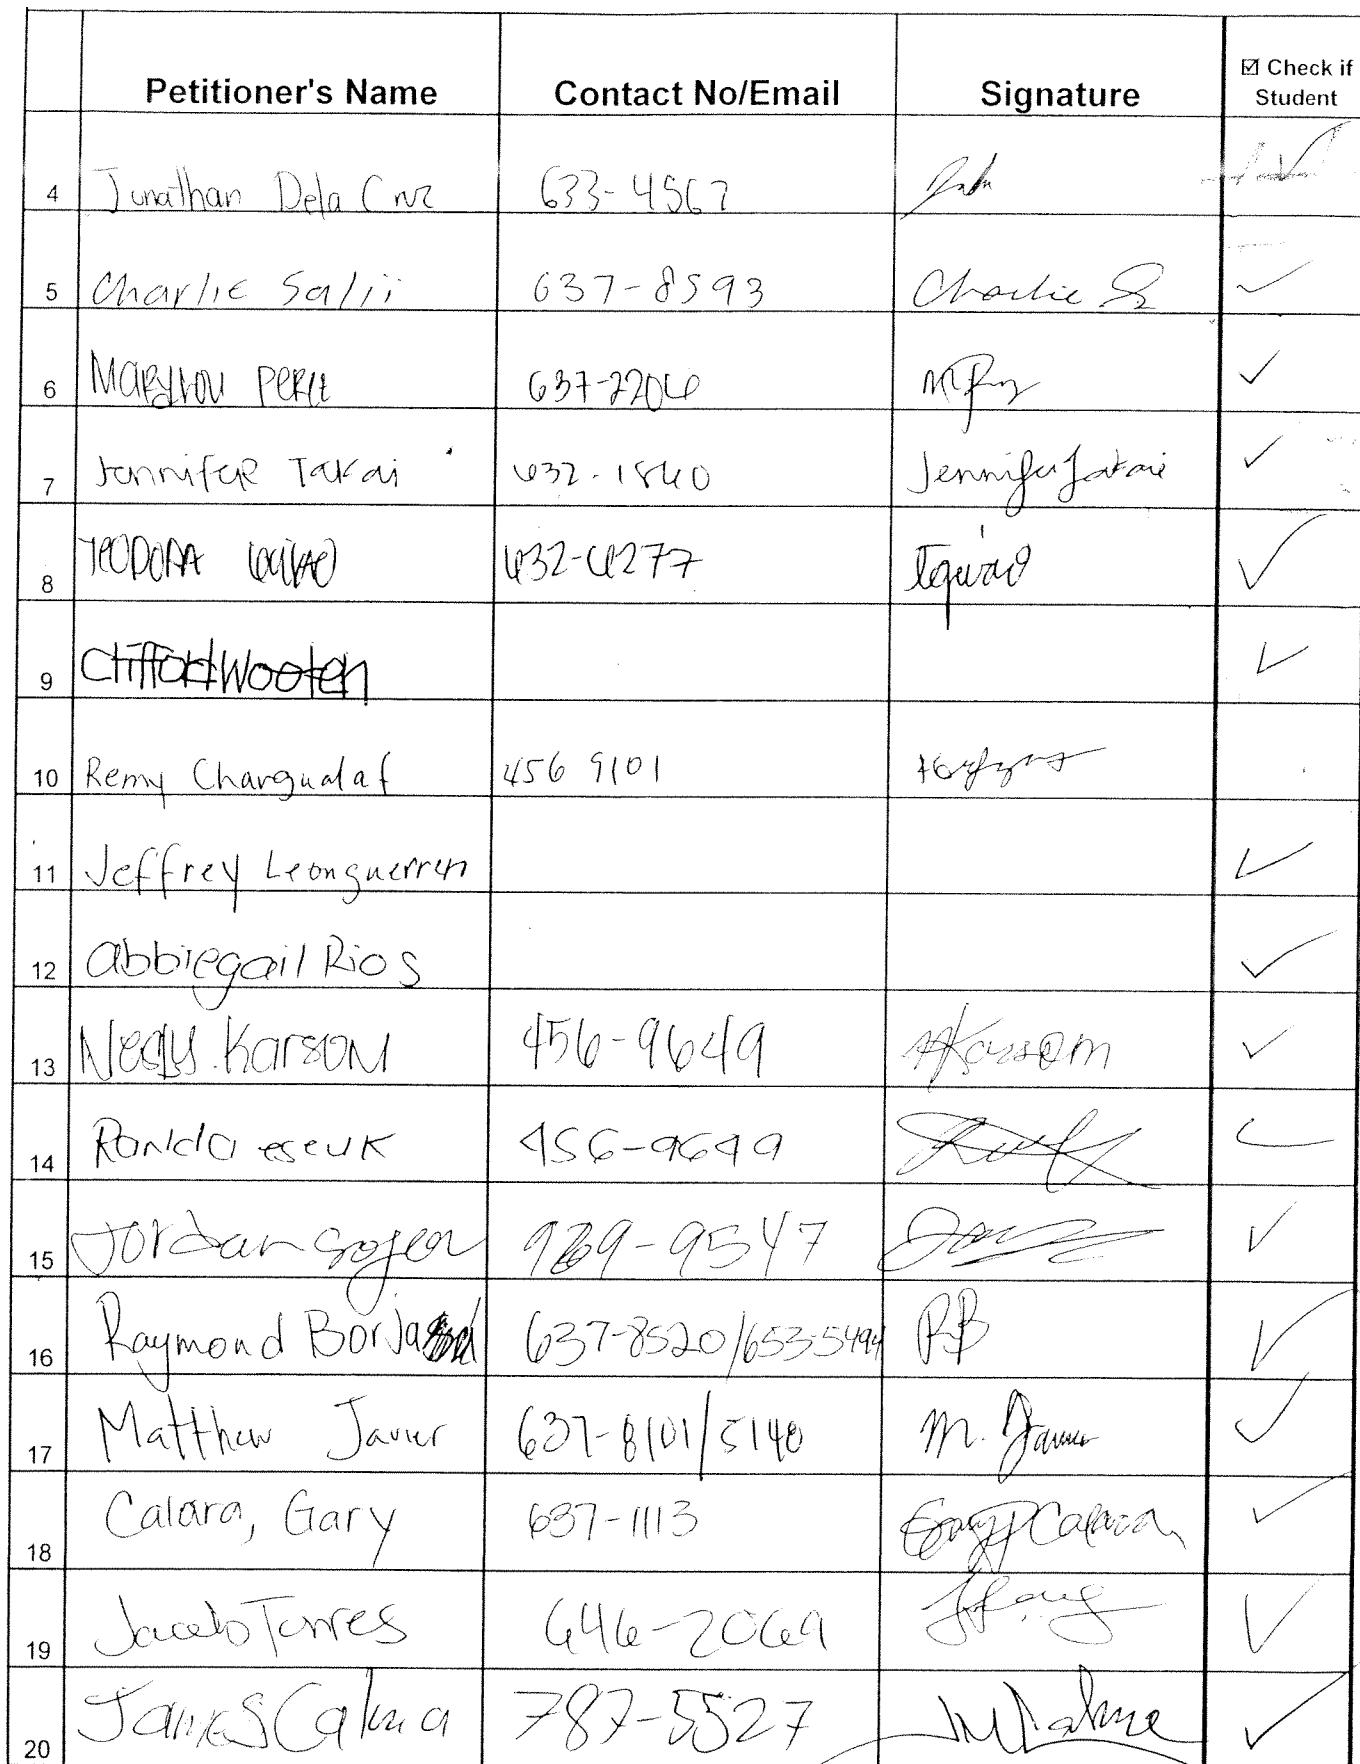 Petitioner's Name Contact No/Email Signature ☑ Check if Student
4 Jonathan Dela Cruz 633-4567 ✓
5 Charlie Salii 637-8593 Charlie S ✓
6 MARYLOU PEREZ 637-2206 ✓
7 Jennifer Takai 632-1840 Jennifer Takai ✓
8 TEODORA 632-6277 ✓
9 Clifford Wooten ✓
10 Remy Chargualaf 456 9101
11 Jeffrey Leonguerren ✓
12 abbiegail Rios ✓
13 Karsom 456-9649 NKarsom ✓
14 eseuk 456-9649 ✓
15 Jordan 989-9547 ✓
16 Raymond Borja 637-8520/653-5494 RB ✓
17 Matthew Javier 637-8101/5140 M. Javier ✓
18 Calara, Gary 637-1113 Gary P Calara ✓
19 Jacob Torres 646-2069 ✓
20 James Calma 787-5527 JMCalma ✓